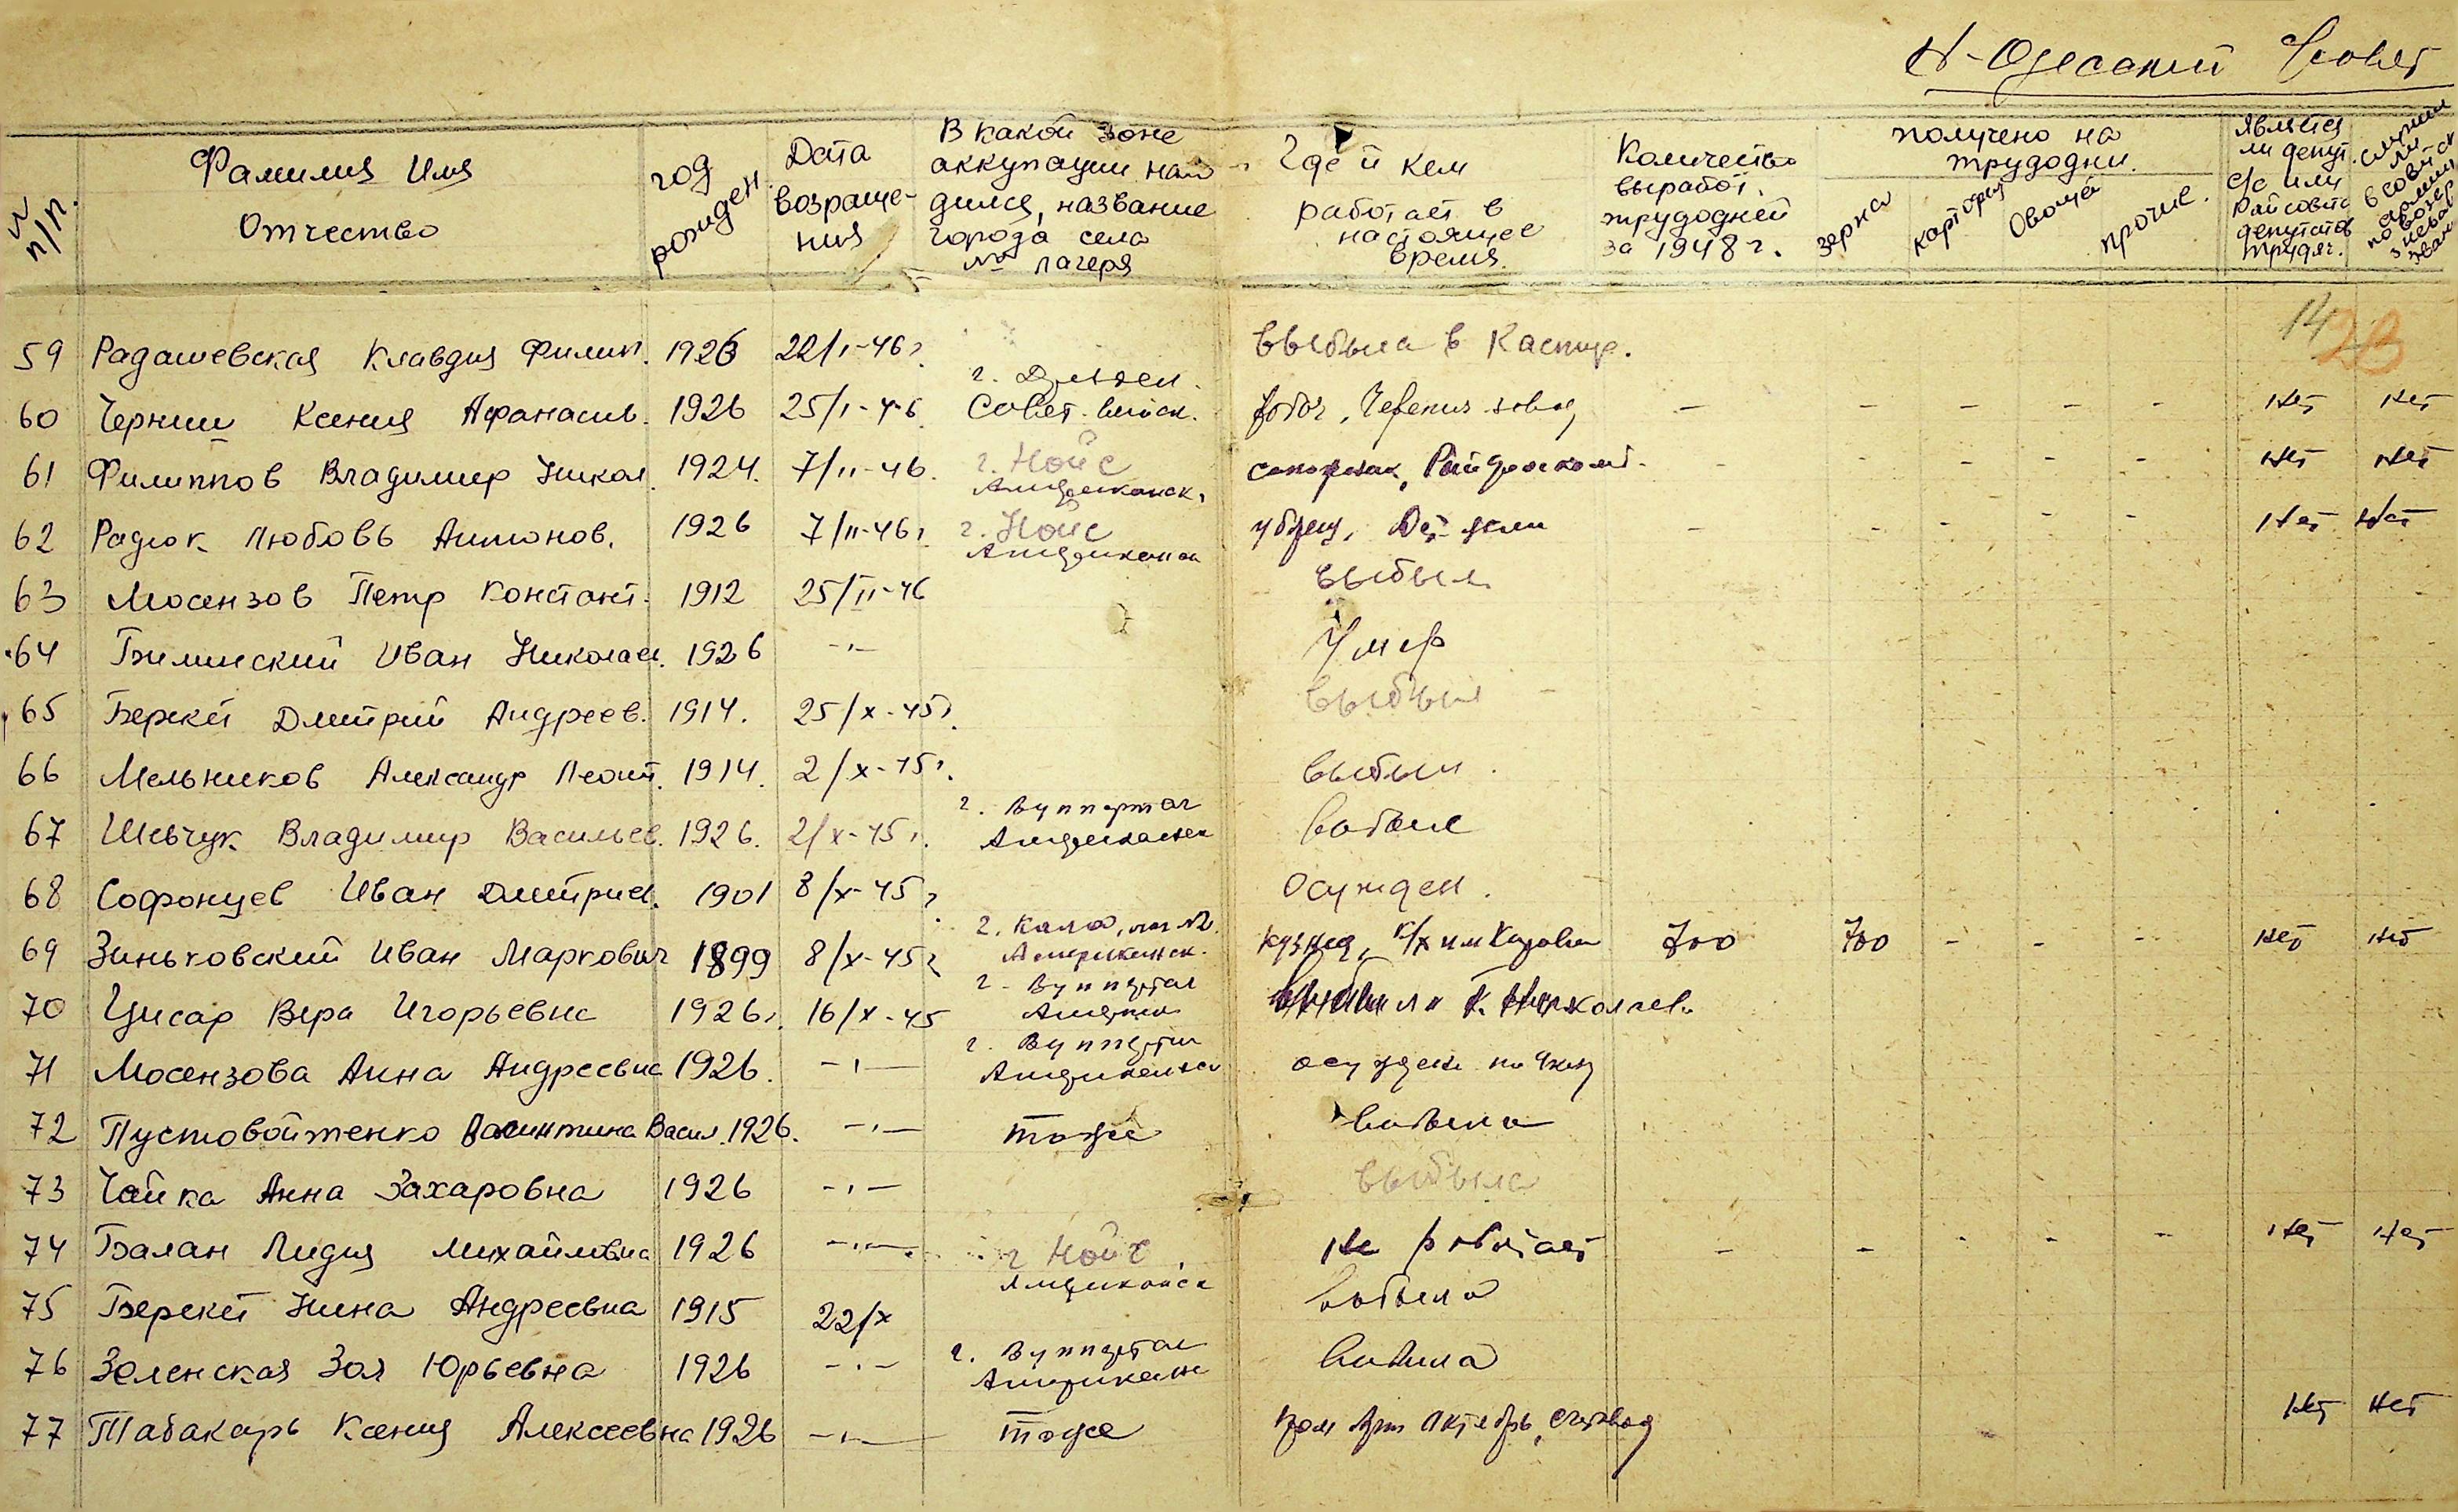 Н-Одесский с/совет
№ п/п.
Фамилия Имя
Отчество
год
рожден.
Дата
возраще-
ния
В какой зоне
аккупации нахо
дился, название
города села
№ лагеря
Где и кем
работает в
настоящее
время.
Количество
выработ.
трудодней
за 1948 г.
получено на
трудодни.
зерна
картофел
Овощей
прочие.
Является
ли депут.
с/с или
Райсовета
депутатов
трудящ.
служил
ли
в сов.
армии
14 23
59 Радашевская Клавдия Филип. 1926 22/I-46 г выбыла в
г. Дрезден.
60 Черниш Ксения Афанасьев. 1926 25/I-46 Совет. войск. рабоч, Черепич завод — - - - - Нет Нет
61 Филиппов Владимир Никол. 1924. 7/II-46. г. Нойс сапожник, - - - - - Нет Нет
Американск.
62 Радюк Любовь Антонов. 1926 7/II-46 г г. Нойс уборщ. Дет. ясли - - - - - Нет Нет
Американск
63 Мосензов Петр Констант. 1912 25/II-46 выбыл
64 Билинский Иван Николаев. 1926 -"- Умер
65 Берекет Дмитрий Андреев. 1914. 25/X-45 г. выбыл -
66 Мельников Александр Леонт. 1914. 2/X-45 г. выбыл.
г. Вуппертал
67 Шевчук Владимир Васильев. 1926. 2/X-45 г. Американск выбыл
68 Софонцев Иван Дмитриев. 1901 8/X-45 г. осужден.
69 Зиньковский Иван Маркович 1899 8/X-45 г Американск. кузнец, к/х им 700 700 - - - нет нет
г. Вуппертал
70 Цисар Вера Игорьевна 1926 г. 16/X-45 Америк выбыла г. Николаев.
г. Вуппертал
71 Мосензова Анна Андреевна 1926. -"- Американск осуждена
72 Пустовойтенко Валентина Васил. 1926. -"- тоже выбыла
73 Чайка Анна Захаровна 1926 -"- выбыла
74 Балан Лидия Михайловна 1926 -"- г Нойс не работает - - - - - Нет Нет
Американск
75 Берекет Нина Андреевна 1915 22/X выбыла
76 Зеленская Зоя Юрьевна 1926 -"- г. Вуппертал выбыла
Американ
77 Табакарь Ксения Алексеевна 1926 -"- тоже пром Арт Октябрь, счетовод Нет нет